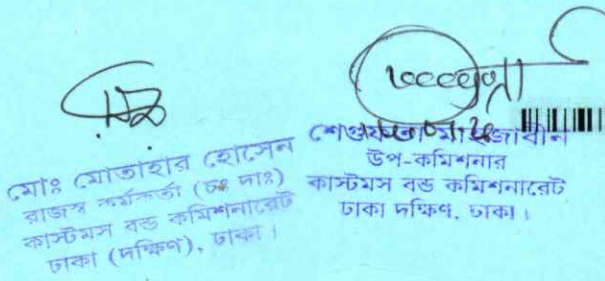 মোঃ মোতাহার হোসেন
রাজস্ব কর্মকর্তা (চঃ দাঃ)
কাস্টমস বন্ড কমিশনারেট
ঢাকা (দক্ষিণ), ঢাকা।
উপ-কমিশনার
কাস্টমস বন্ড কমিশনারেট
ঢাকা দক্ষিণ, ঢাকা।